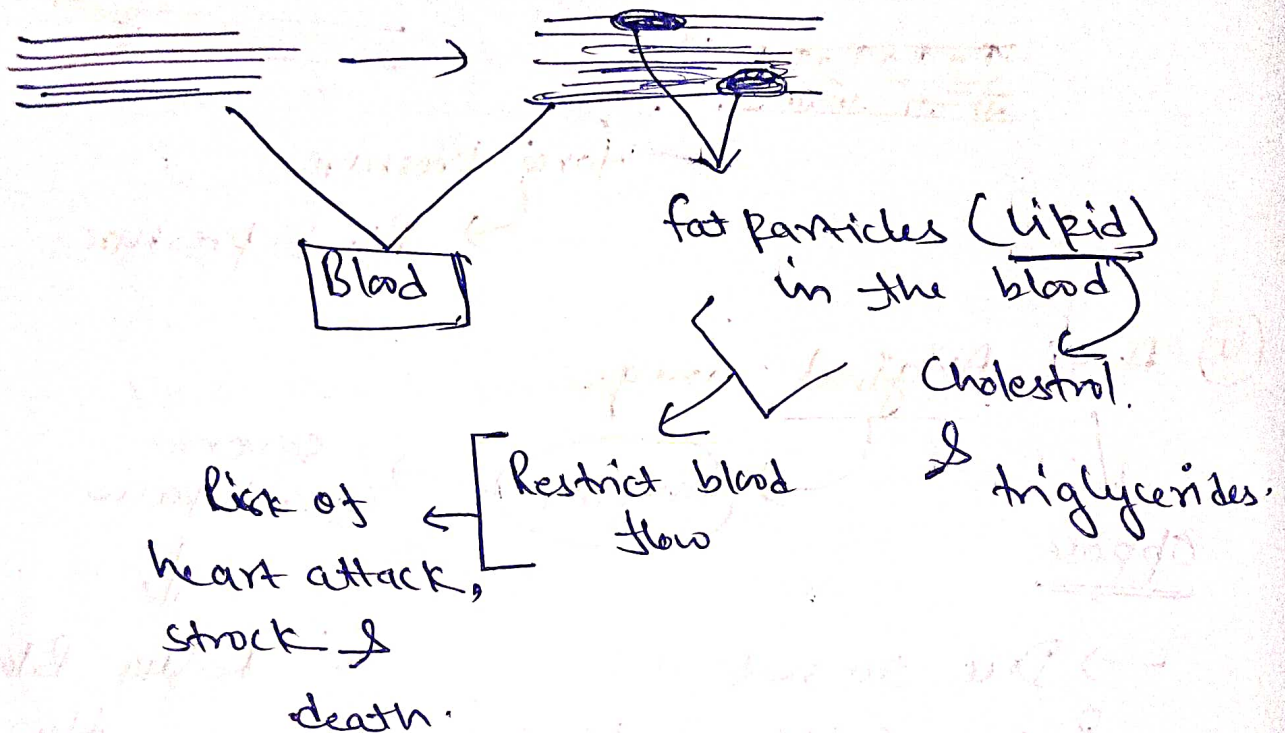 Blood
fat particles (lipid)
in the blood
Cholestrol.
&
triglycerides.
Restrict blood
flow
Risk of
heart attack,
strock &
death.